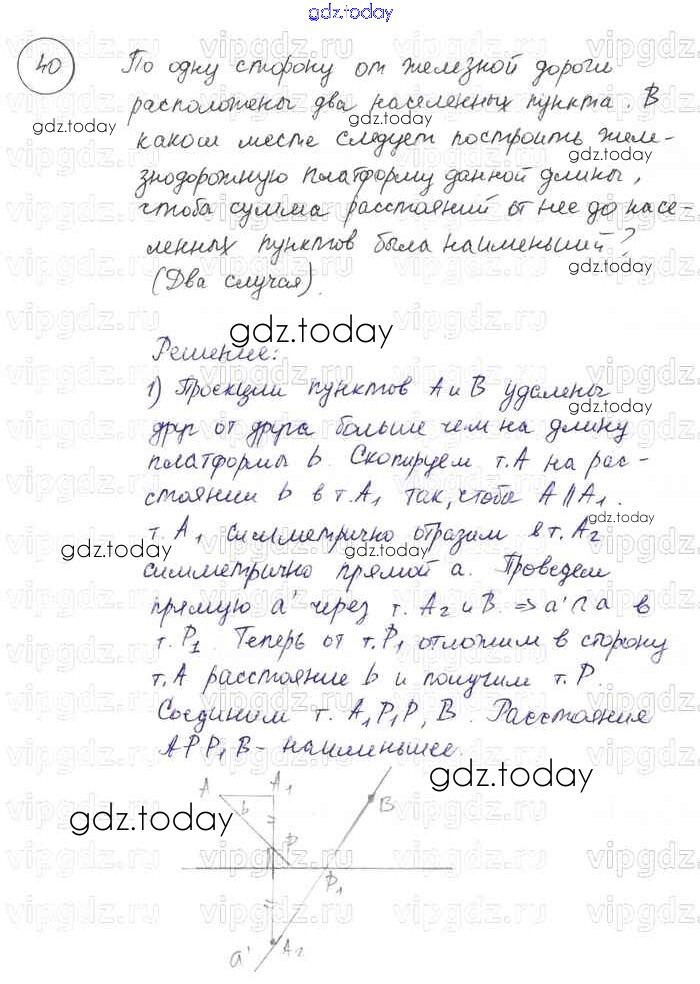 gdz.today
40 По одну сторону от железной дороги
расположены два населенных пункта. В
каком месте следует построить желе-
знодорожную платформу данной длины,
чтоба сумма расстояний от нее до насе-
ленных пунктов была наименьший?
(Два случая).
Решение:
1) Проекции пунктов А и В удалены
друг от друга больше чем на длину
платформы b. Скопируем т. А на рас-
стоянии b в т. А₁ так, чтобы А ∥ А₁.
т. А₁ симметрично отразим в т. А₂
симметрично прямой а. Проведем
прямую а' через т. А₂ и В. => а' ∩ а в
т. Р₁. Теперь от т. Р₁ отложим в сторону
т. А расстояние b и получим т. Р.
Соединим т. А₁ Р₁ Р, В. Расстояние
АРР₁В - наименьшее.
A A₁ B
b P
P₁
a' A₂
gdz.today
vipgdz.ru